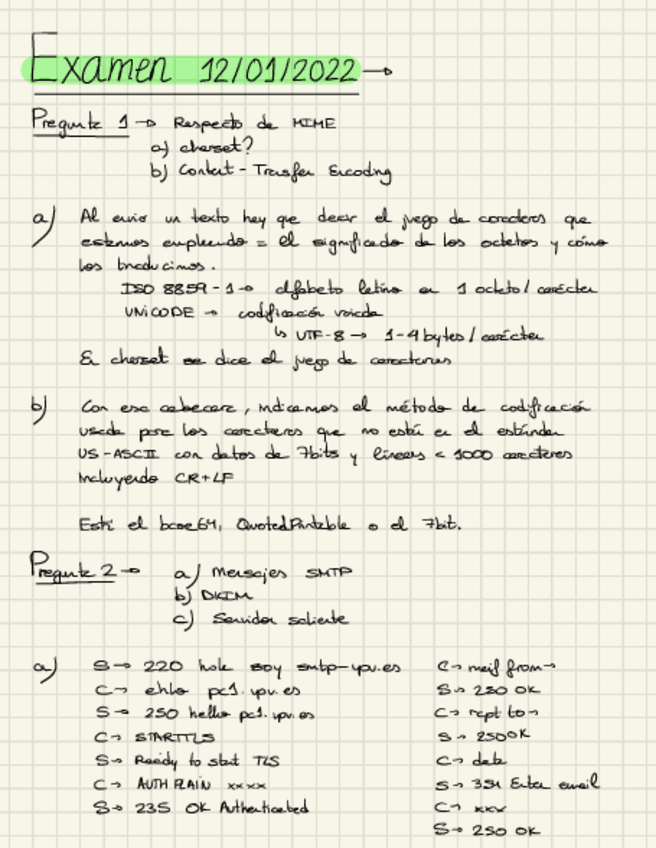 Examen 12/01/2022 →
Pregunta 1 → Respecto de MIME
a) charset?
b) Content-Transfer Encoding
a) Al envio un texto hay que decir el juego de caracteres que
estamos empleando = el significado de los octetos y cómo
los traducimos.
ISO 8859-1 → alfabeto latino en 1 octeto/carácter
UNICODE → codificación variada
↳ UTF-8 → 1-4 bytes/carácter
El charset se dice el juego de caracteres
b) Con esa cabecera, indicamos el método de codificación
usada para los caracteres que no está en el estándar
US-ASCII con datos de 7bits y líneas < 1000 caracteres
Incluyendo CR+LF
Está el base64, QuotedPrintable o el 7bit.
Pregunta 2 → a) Mensajes SMTP
b) DKIM
c) Servidor saliente
a) S → 220 hola soy smtp-upv.es
C → ehlo pc1.upv.es
S → 250 hello pc1.upv.es
C → STARTTLS
S → Ready to start TLS
C → AUTH PLAIN xxxx
S → 235 OK Authenticated
C → mail from →
S → 250 OK
C → rcpt to →
S → 250OK
C → data
S → 354 Enter email
C → xxx
S → 250 OK